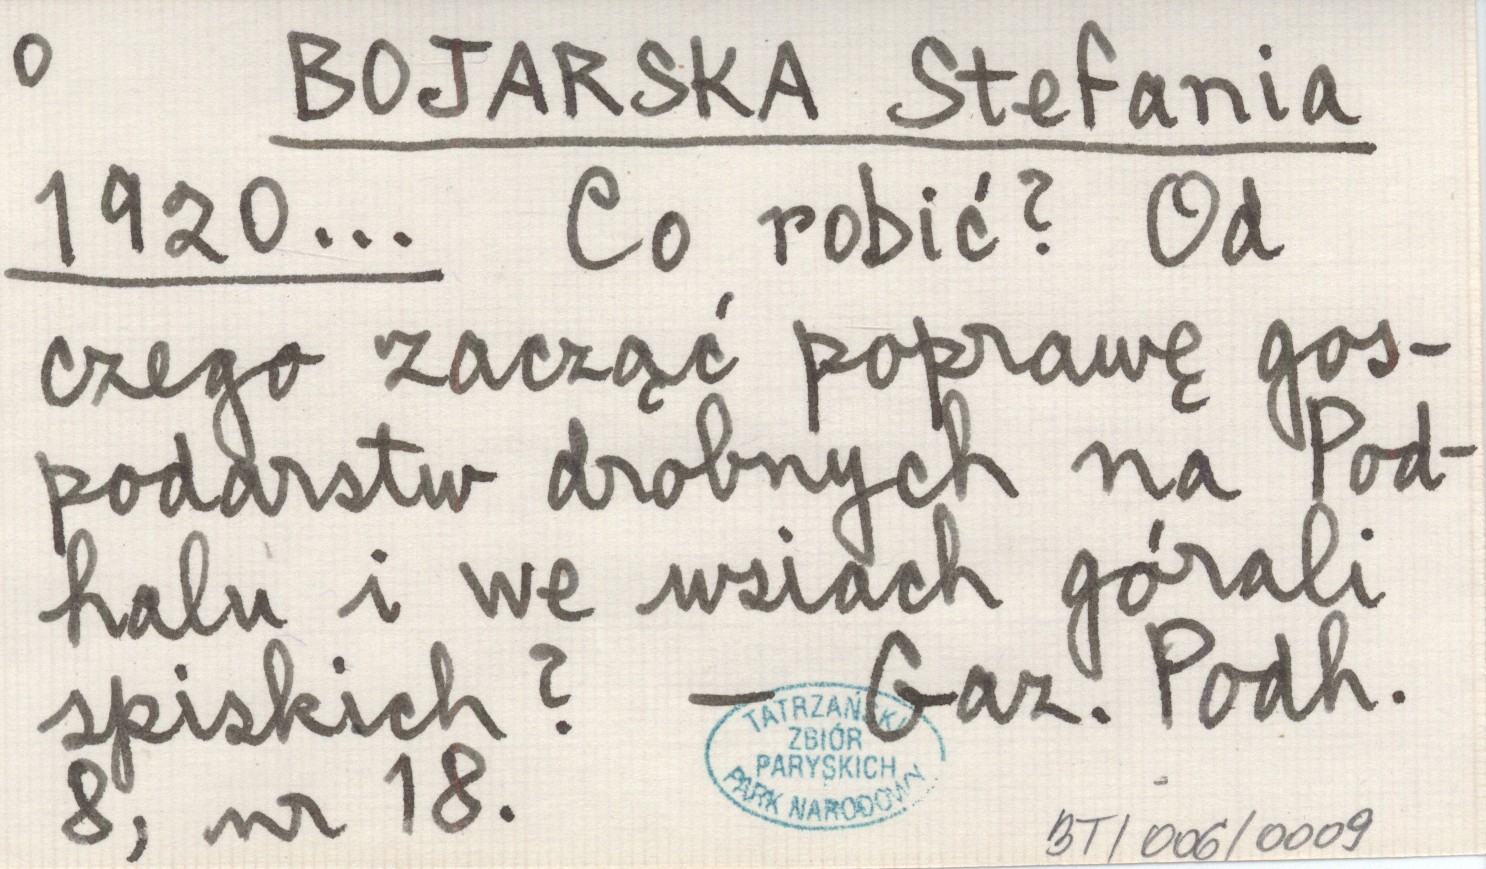 o BOJARSKA Stefania
1920... Co robić? Od
czego zacząć poprawę gos-
podarstw drobnych na Pod-
halu i we wsiach górali
spiskich? — Gaz. Podh.
8, nr 18.
TATRZAŃSKI
ZBIÓR
PARYSKICH
PARK NARODOWY
BT/006/0009